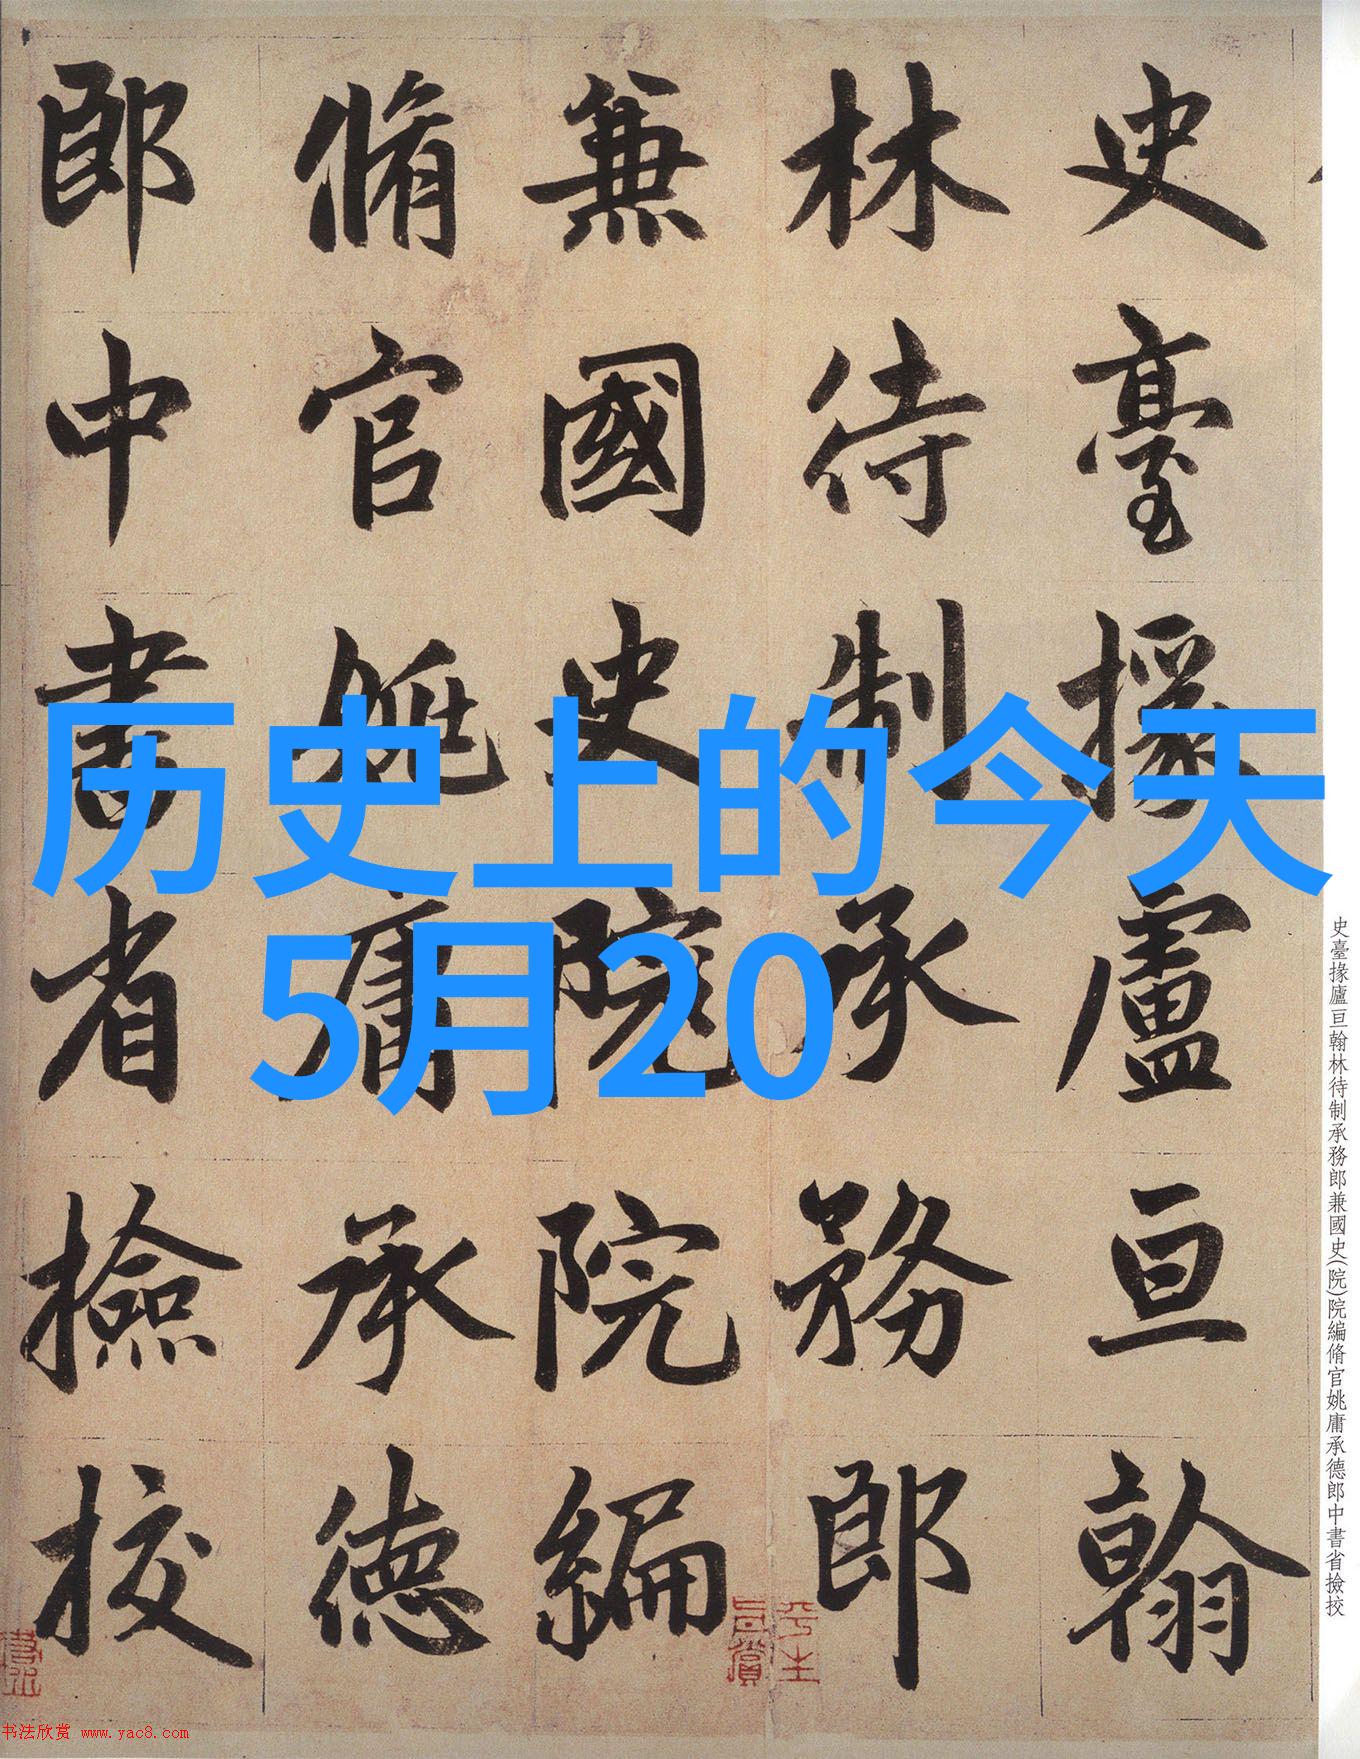 史臺掾廬亘翰
林待制承務郎
兼國史院院編
脩官姚庸承德
郎中書省撿挍
历史上的今天
5月20
史臺掾廬亘翰林待制承務郎兼國史(院)院編脩官姚庸承德郎中書省撿挍
平生
书法欣赏 www.yac8.com